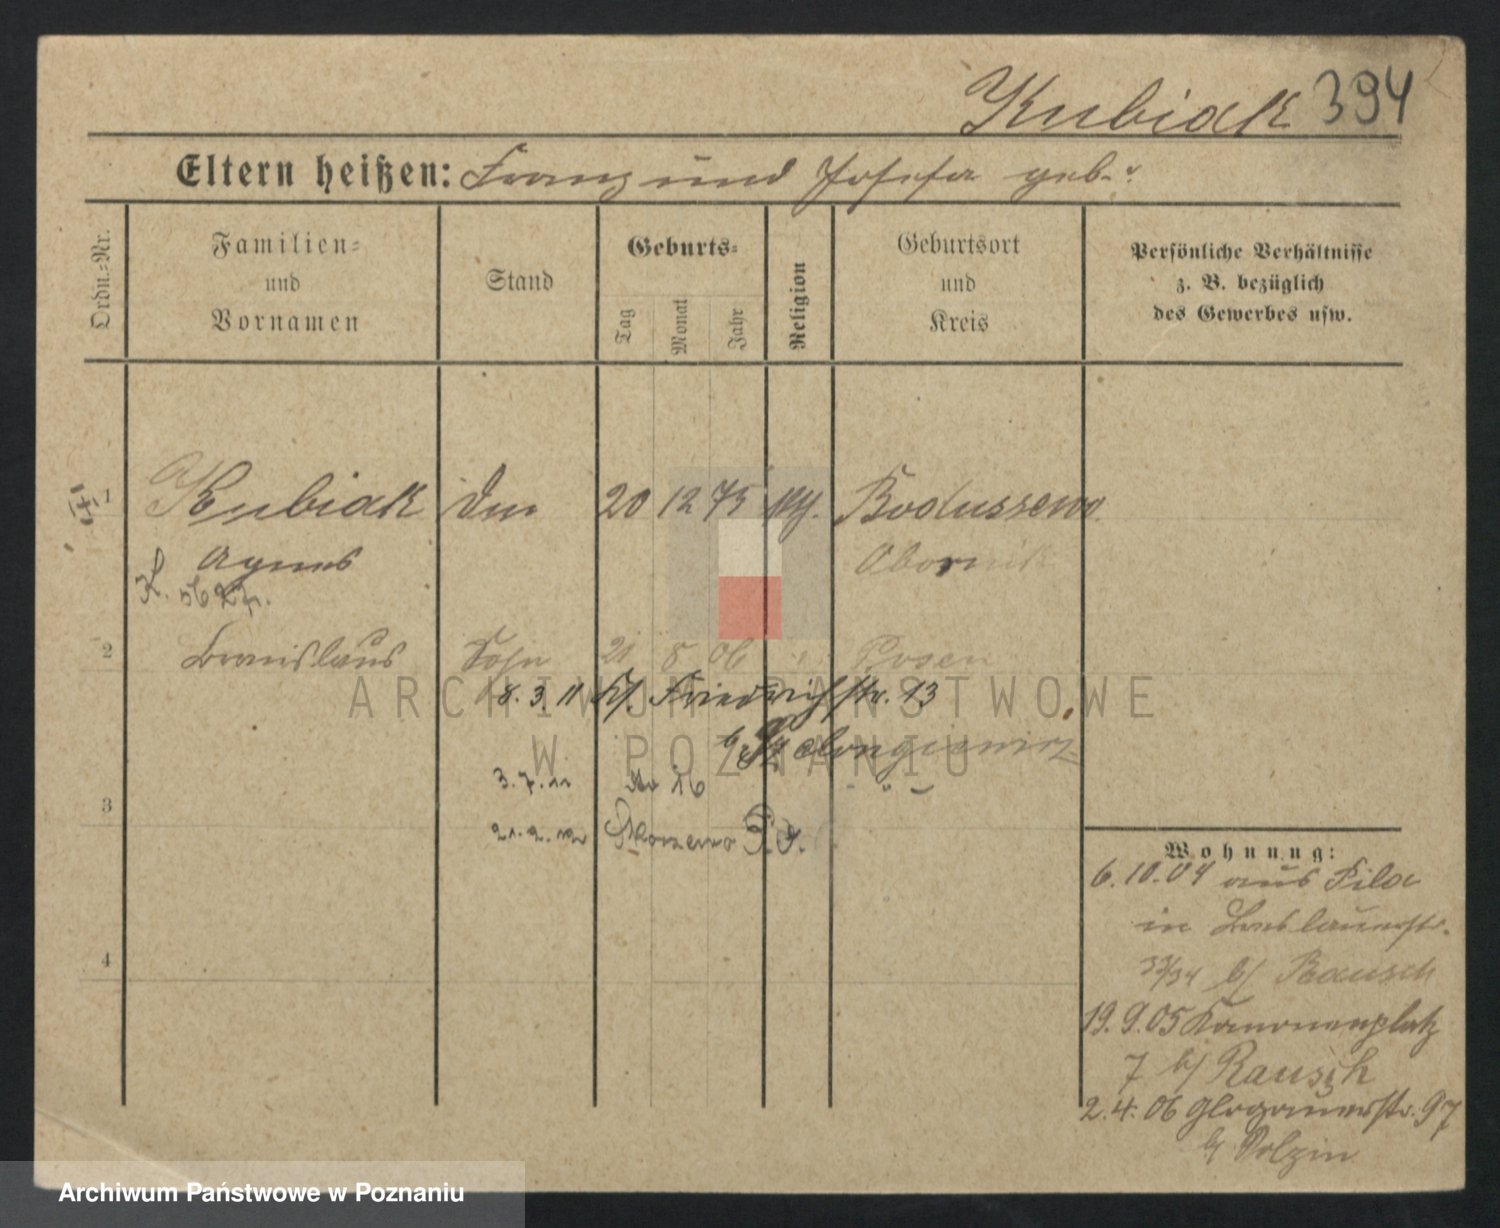 Kubiak 394
Eltern heißen: Franz und Josefa geb. ?
Ordn.-Nr.
Familien-
und
Vornamen
Stand
Geburts-
Tag
Monat
Jahr
Religion
Geburtsort
und
Kreis
Persönliche Verhältnisse
z. B. bezüglich
des Gewerbes usw.
1 Kubiak 20 12 75 Boduszewo
Agnes Obornik
K.
2 Bronislaus Sohn 21 8 06 Posen
8. 3. 11 Friedrichstr. 13
3.7.11 16
3
21.2.12 P. O.
4
Wohnung:
6.10.04 aus Pila
in Breslauerstr.
33/34 b/ Rausch
19.9.05 Kanonenplatz
7 b/ Rausch
2.4.06 Glogauerstr. 97
ARCHIWUM PAŃSTWOWE
W POZNANIU
Archiwum Państwowe w Poznaniu